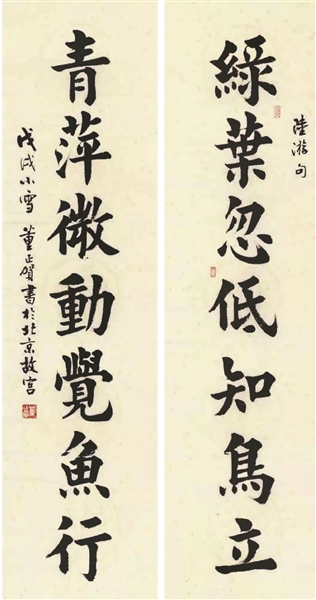 綠葉忽低知鳥立
陸游句
青萍微動覺魚行
戊戌小雪 董正賀書於北京故宮